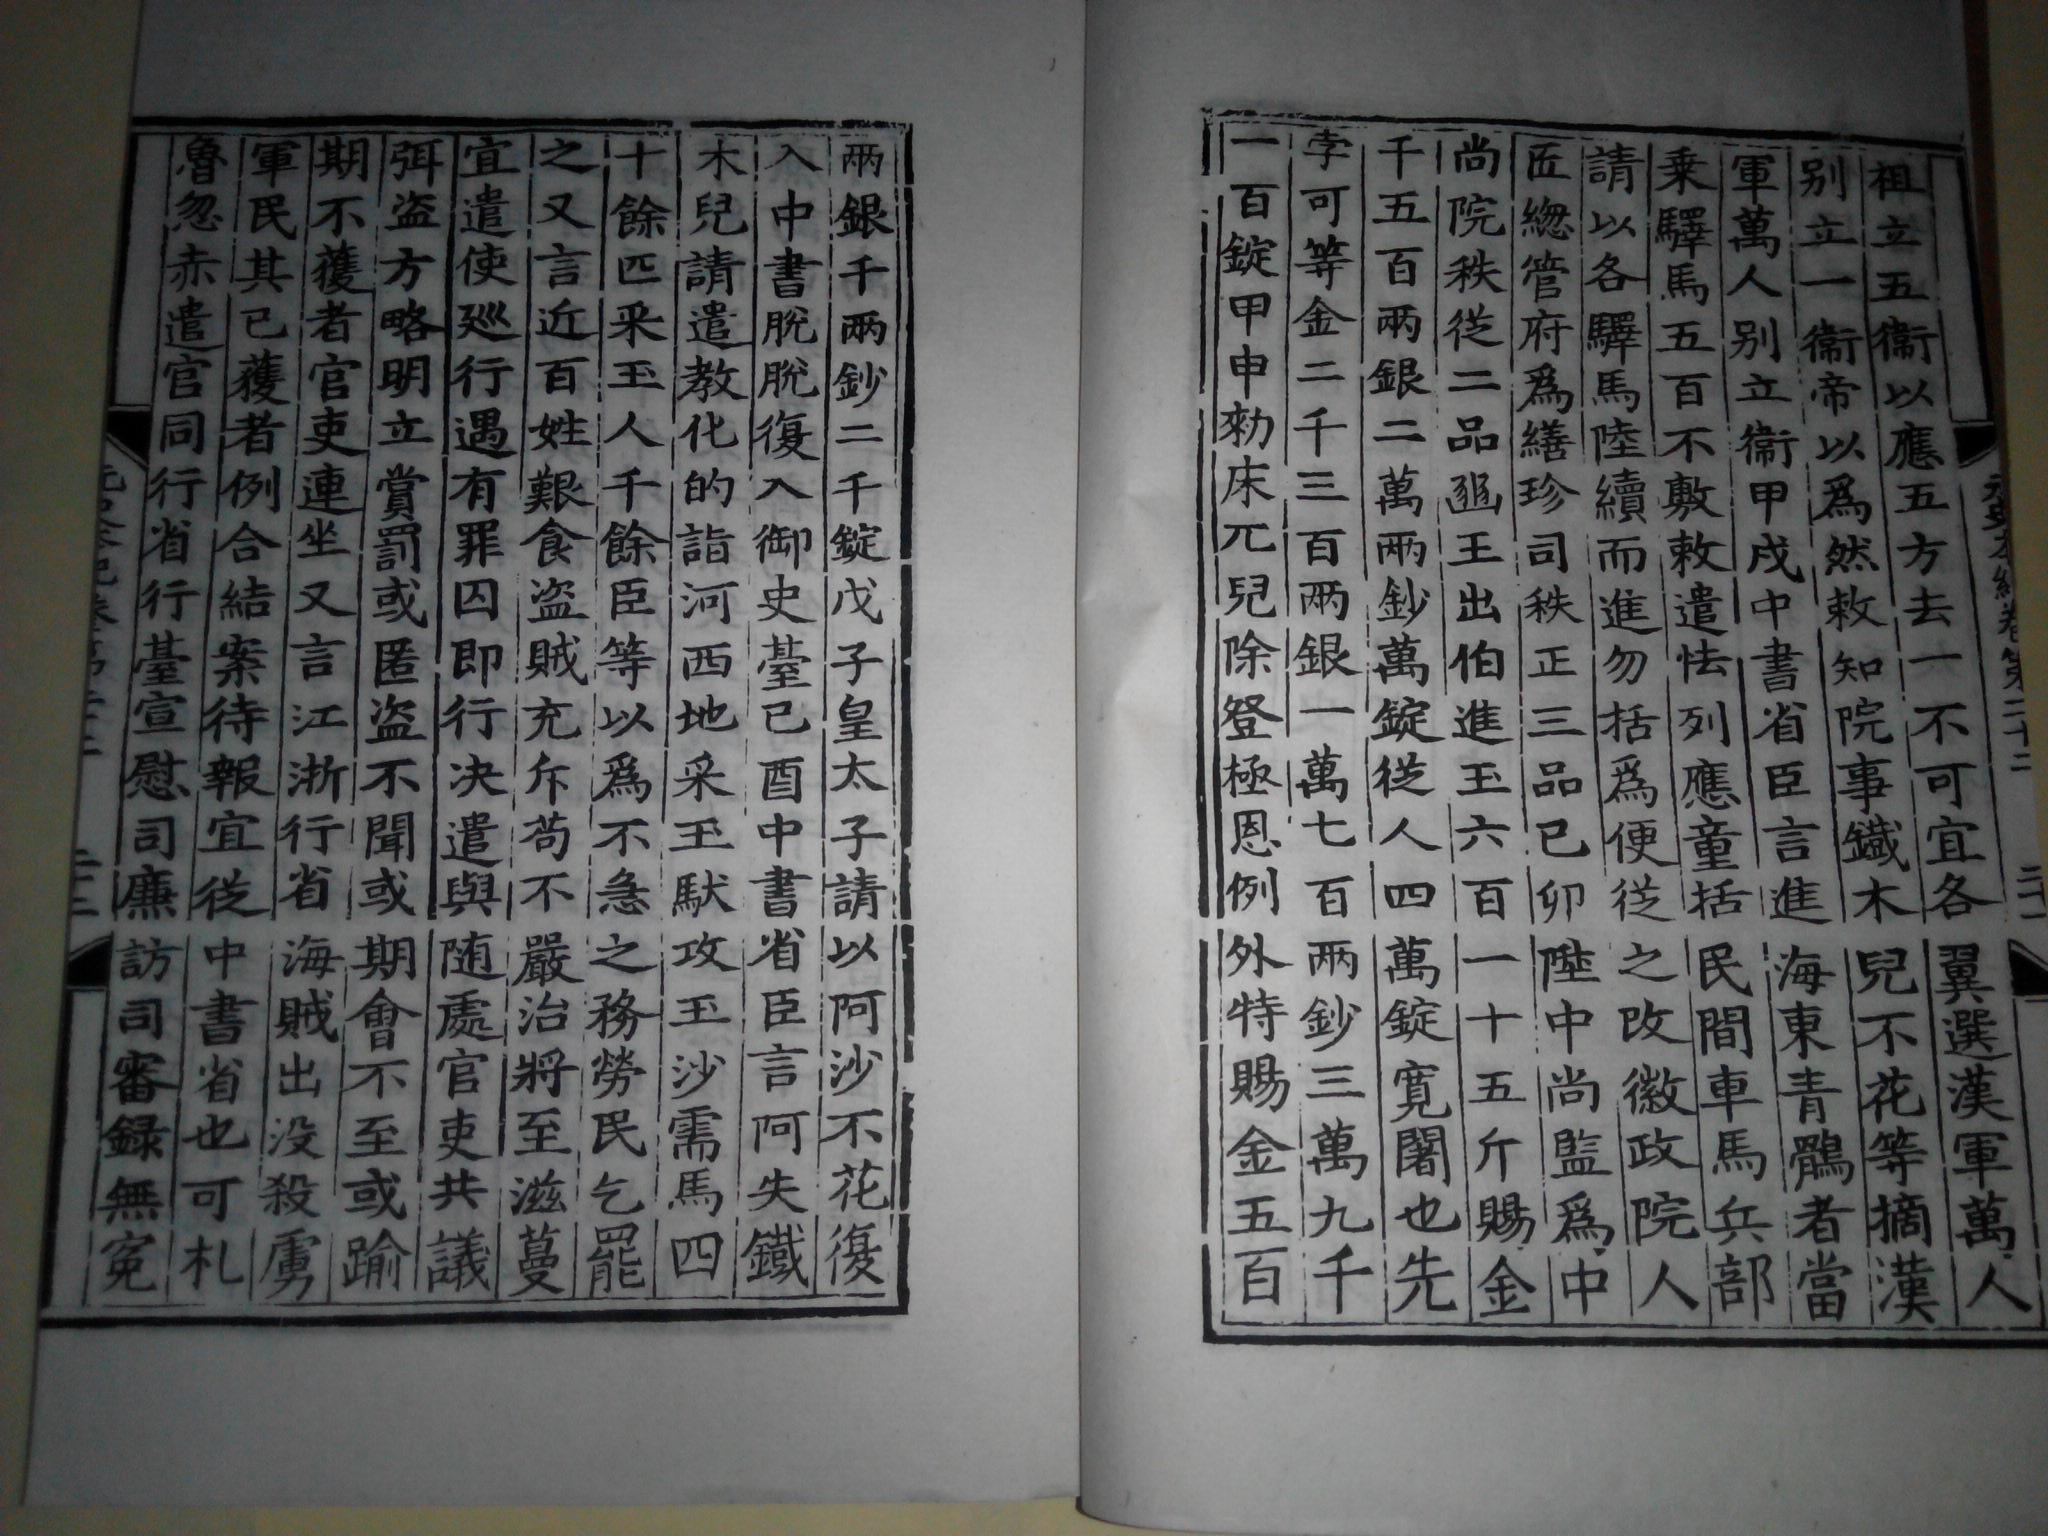 祖立五衞以應五方去一不可宜各翼選漢軍萬人
别立一衞帝以爲然敕知院事鐵木兒不花等摘漢
軍萬人别立衞甲戌中書省臣言進海東青鶻者當
乗驛馬五百不敷敕遣怯列應童括民間車馬兵部
請以各驛馬陸續而進勿括爲便從之改徽政院人
匠總管府爲繕珍司秩正三品己卯陞中尚監爲中
尚院秩從二品豳王出伯進玉六百一十五斤賜金
千五百兩銀二萬兩鈔萬錠從人四萬錠寛闍也先
孛可等金二千三百兩銀一萬七百兩鈔三萬九千
一百錠甲申勑床兀兒除登極恩例外特賜金五百
兩銀千兩鈔二千錠戊子皇太子請以阿沙不花復
入中書脫脫復入御史臺己酉中書省臣言阿失鐵
木兒請遣教化的詣河西地采玉馱攻玉沙需馬四
十餘匹采玉人千餘臣等以爲不急之務勞民乞罷
之又言近百姓艱食盗賊充斥苟不嚴治將至滋蔓
宜遣使廵行遇有罪囚即行决遣與随處官吏共議
弭盗方略明立賞罰或匿盗不聞或期會不至或踰
期不獲者官吏連坐又言江浙行省海賊出没殺虜
軍民其已獲者例合結案待報宜從中書省也可札
魯忽赤遣官同行省行臺宣慰司廉訪司審録無寃